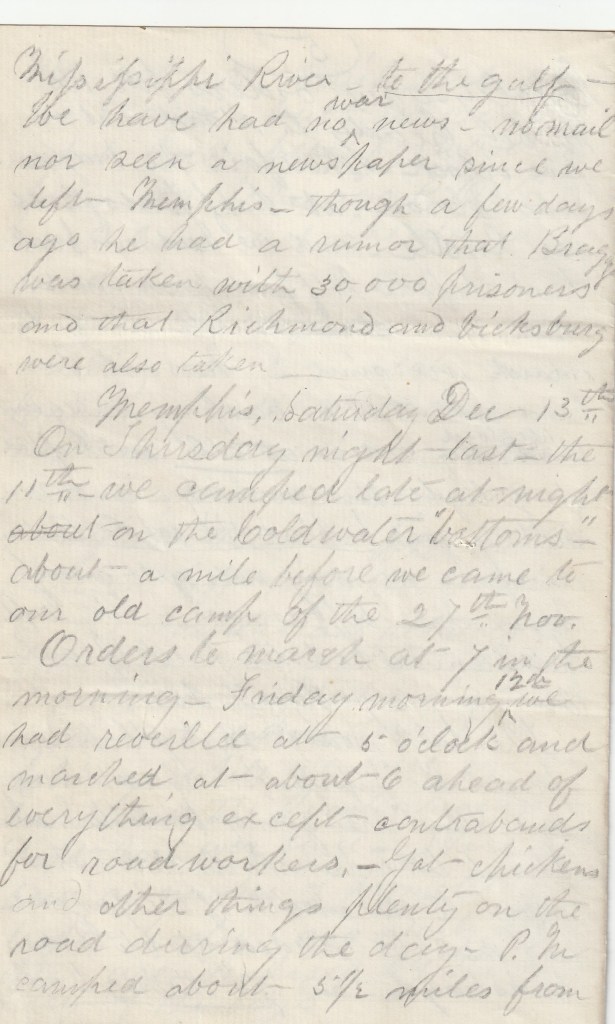 Mississippi River - to the gulf -
We have had no war news - no mail
nor seen a newspaper since we
left Memphis - though a few days
ago he had a rumor that Bragg
was taken with 30,000 prisoners
and that Richmond and Vicksburg
were also taken
Memphis, Saturday Dec 13th
On Thursday night last - the
11th - we camped late at night
about on the Coldwater "bottoms" -
about a mile before we came to
our old camp of the 27th Nov.
- Orders to march at 7 in the
morning - Friday morning 12th we
had reveille at 5 o'clock and
marched at about 6 ahead of
everything except contrabands
for road workers. - Got chickens
and other things plenty on the
road during the day - P.M
camped about 5 1/2 miles from